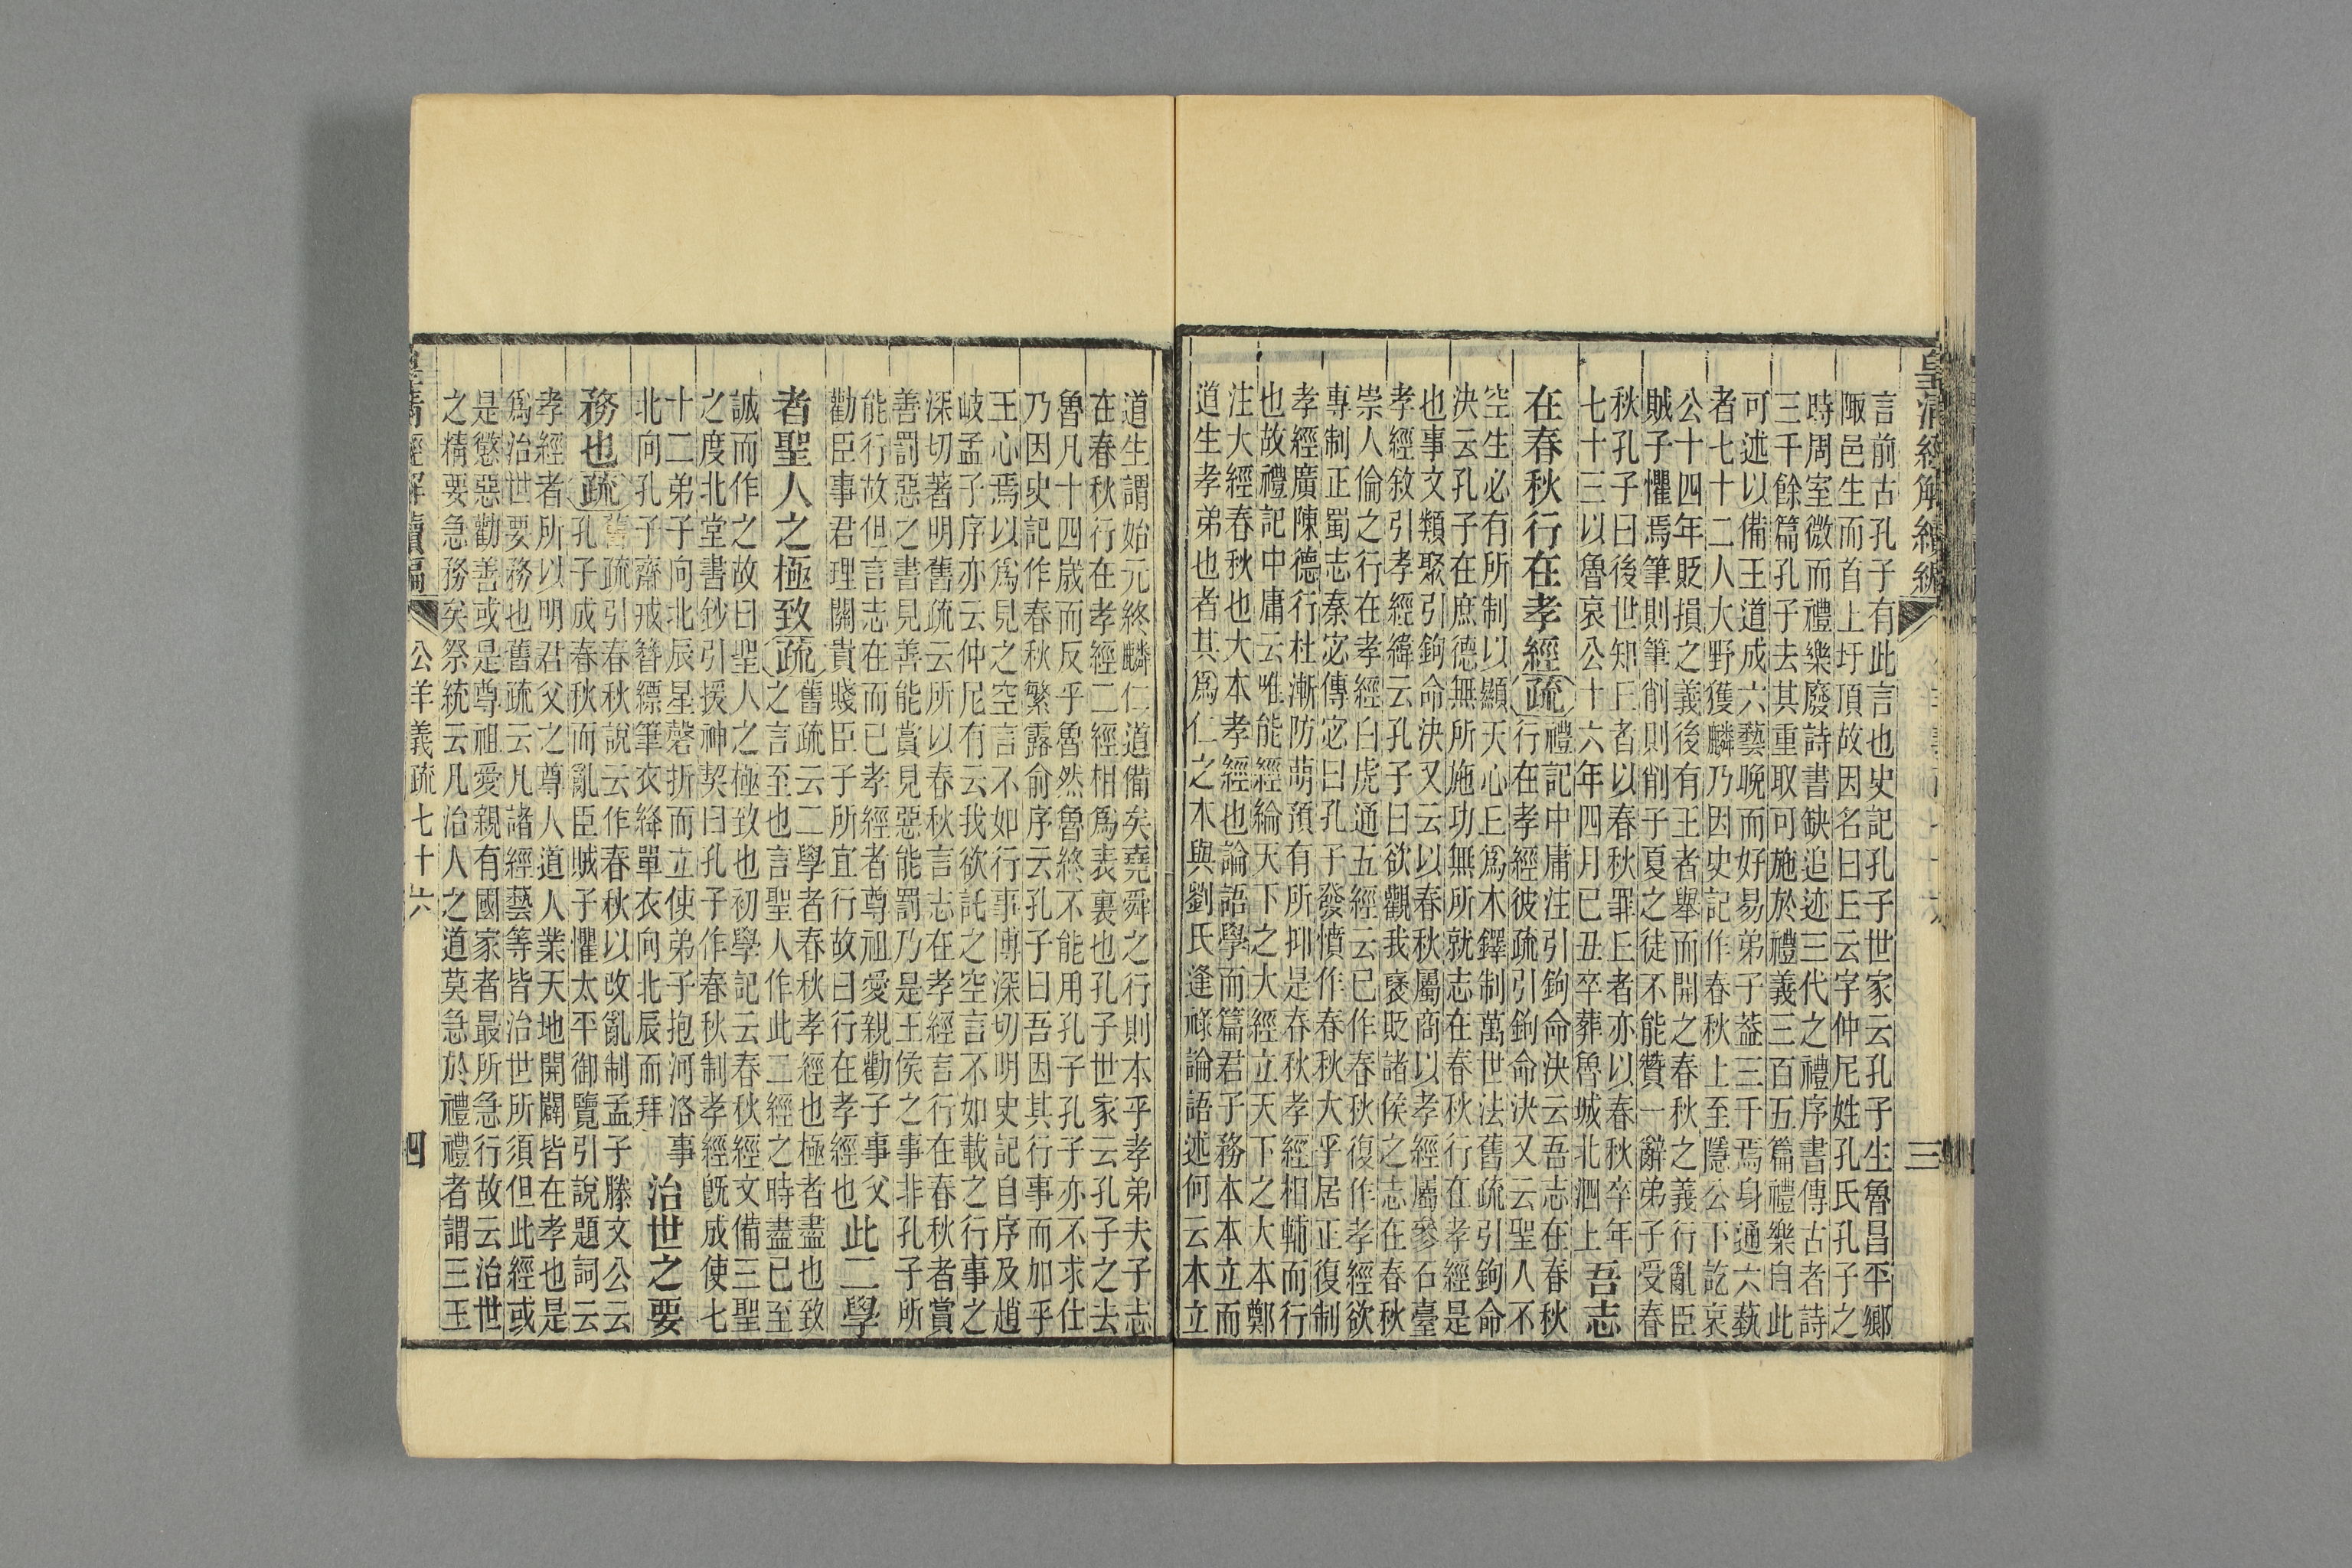 皇清經解續編
三
言前古孔子有此言也史記孔子世家云孔子生魯昌平鄉
陬邑生而首上圩頂故因名曰丘云字仲尼姓孔氏孔子之
時周室微而禮樂廢詩書缺追迹三代之禮序書傳古者詩
三千餘篇孔子去其重取可施於禮義三百五篇禮樂自此
可述以備王道成六藝晚而好易弟子葢三千焉身通六藝
者七十二人大野獲麟乃因史記作春秋上至隱公下訖哀
公十四年貶損之義後有王者舉而開之春秋之義行亂臣
賊子懼焉筆則筆削則削子夏之徒不能贊一辭弟子受春
秋孔子曰後世知丘者以春秋罪丘者亦以春秋卒年
七十三以魯哀公十六年四月己丑卒葬魯城北泗上
吾志
在春秋行在孝經疏
禮記中庸注引鉤命決云吾志在春秋
行在孝經彼疏引鉤命決又云聖人不
空生必有所制以顯天心丘爲木鐸制萬世法舊疏引鉤命
決云孔子在庶德無所施功無所就志在春秋行在孝經是
也事文類聚引鉤命決又云以春秋屬商以孝經屬參石臺
孝經敘引孝經緯云孔子曰欲觀我襃貶諸侯之志在春秋
崇人倫之行在孝經白虎通五經云已作春秋復作孝經欲
專制正蜀志秦宓傳宓曰孔子發憤作春秋大乎居正復制
孝經廣陳德行杜漸防萌預有所抑是春秋孝經相輔而行
也故禮記中庸云唯能經綸天下之大經立天下之大本鄭
注大經春秋也大本孝經也論語學而篇君子務本本立而
道生孝弟也者其爲仁之本與劉氏逢祿論語述何云本立
道生謂始元終麟仁道備矣堯舜之行則本乎孝弟夫子志
在春秋行在孝經二經相爲表裏也孔子世家云孔子之去
魯凡十四歲而反乎魯然魯終不能用孔子孔子亦不求仕
乃因史記作春秋繁露俞序云孔子曰吾因其行事而加乎
王心焉以爲見之空言不如行事博深切明史記自序及趙
岐孟子序亦云仲尼有云我欲託之空言不如載之行事之
深切著明舊疏云所以春秋言志在孝經言行在春秋者賞
善罰惡之書見善能賞見惡能罰乃是王侯之事非孔子所
能行故但言志在而已孝經者尊祖愛親勸子事父
勸臣事君理關貴賤臣子所宜行故曰行在孝經也
此二學
者聖人之極致疏
舊疏云二學者春秋孝經也極者盡也致
之言至也言聖人作此二經之時盡已至
誠而作之故曰聖人之極致也初學記云春秋經文備三聖
之度北堂書鈔引援神契曰孔子作春秋制孝經旣成使七
十二弟子向北辰星磬折而立使弟子抱河洛事
北向孔子齋戒簪縹筆衣絳單衣向北辰而拜
治世之要
務也疏
舊疏引春秋說云作春秋以改亂制孟子滕文公云
孔子成春秋而亂臣賊子懼太平御覽引說題詞云
孝經者所以明君父之尊人道人業天地開闢皆在孝也是
爲治世要務也舊疏云凡諸經藝等皆治世所須但此經或
是懲惡勸善或是尊祖愛親有國家者最所急行故云治世
之精要急務矣祭統云凡治人之道莫急於禮禮者謂三王
皇清經解續編
公羊義疏七十六
四